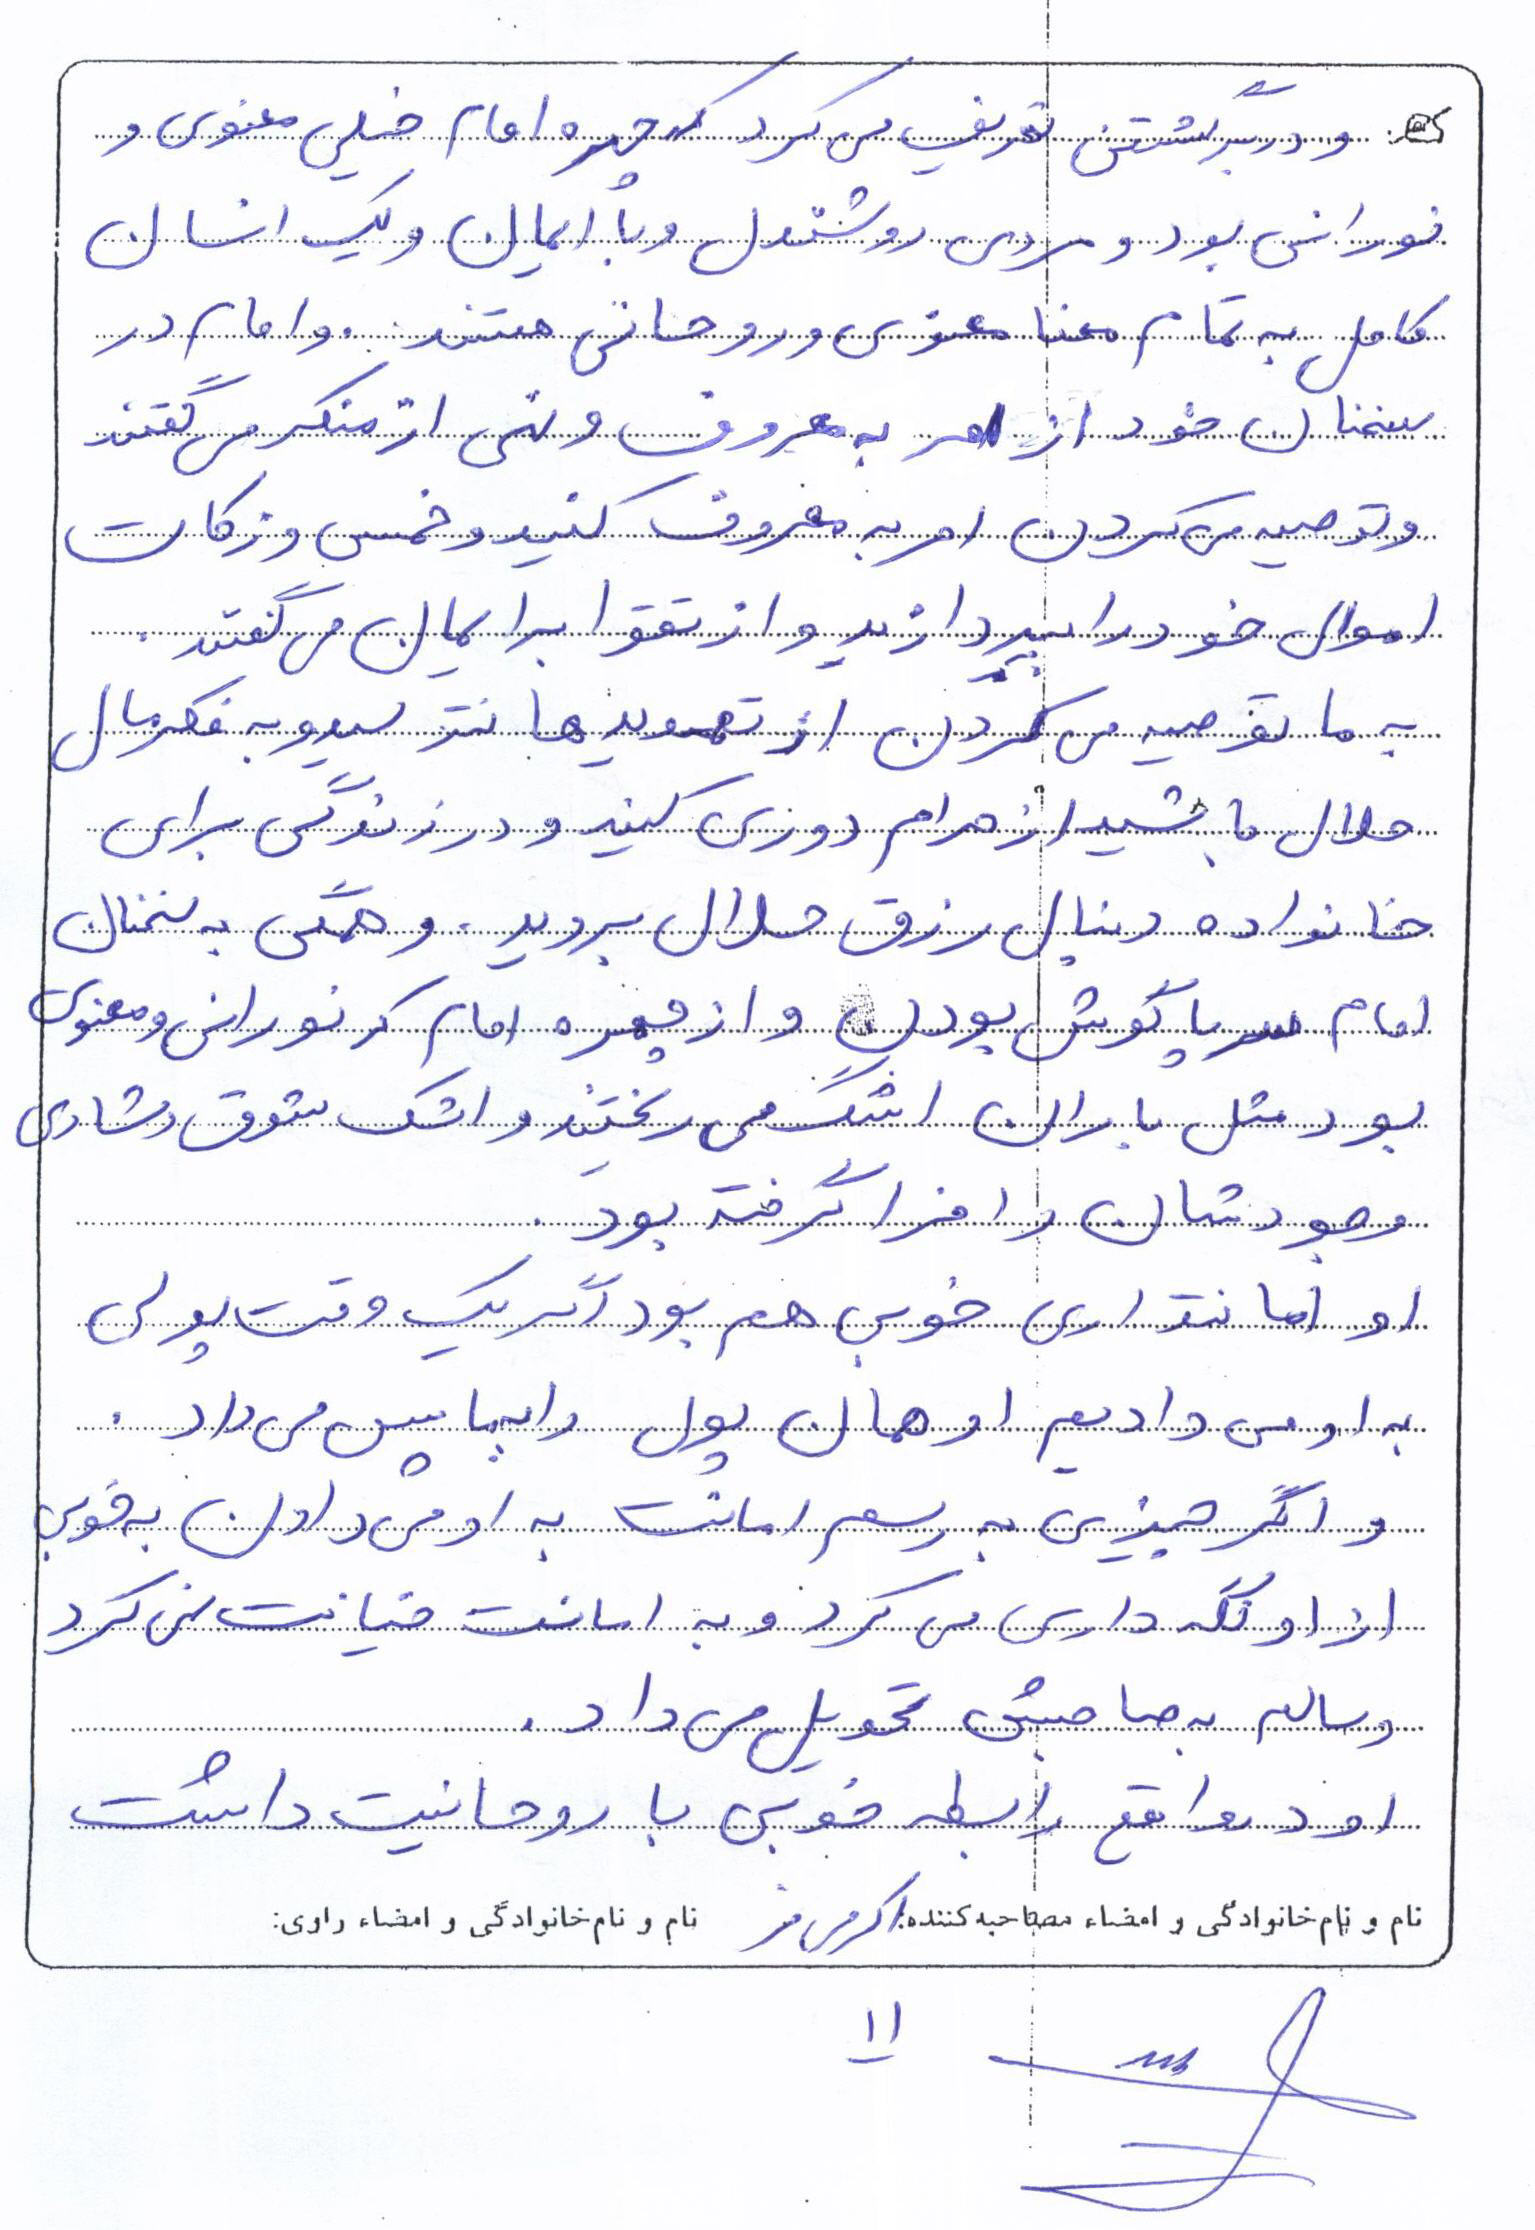 و در برگشتن تعریف می کرد که چهره امام خیلی معنوی و
نورانی بود و مردی روشندل و با ایمان و یک انسان
کامل به تمام معنا معنوی و روحانی هستند. و امام در
سخنان خود از امر به معروف و نهی از منکر می گفتند
و توصیه می کردن امر به معروف کنید و خمس و زکات
اموال خود را بپردازید و از تقوا برا ایمان می گفتند.
به ما توصیه می کردن از تهدیدها نترسید و به فکر مال
حلال باشید از حرام دوری کنید و در زندگی برای
خانواده دنبال رزق حلال بروید. و همگی به سخنان
امام سرپا گوش بودن و از چهره امام که نورانی و معنوی
بود مثل باران اشک می ریختند و اشک شوق و شادی
وجودشان را فرا گرفته بود.
او امانتداری خوبی هم بود اگر یک وقت پولی
به او می دادیم او همان پول را به ما پس می داد.
و اگر چیزی به رسم امانت به او می دادن به خوبی
از او نگه داری می کرد و به امانت خیانت نمی کرد
و سالم به صاحبش تحویل می داد.
او در واقع رابطه خوبی با روحانیت داشت
نام و نام خانوادگی و امضاء مصاحبه کننده: نام و نام خانوادگی و امضاء راوی:
۱۱